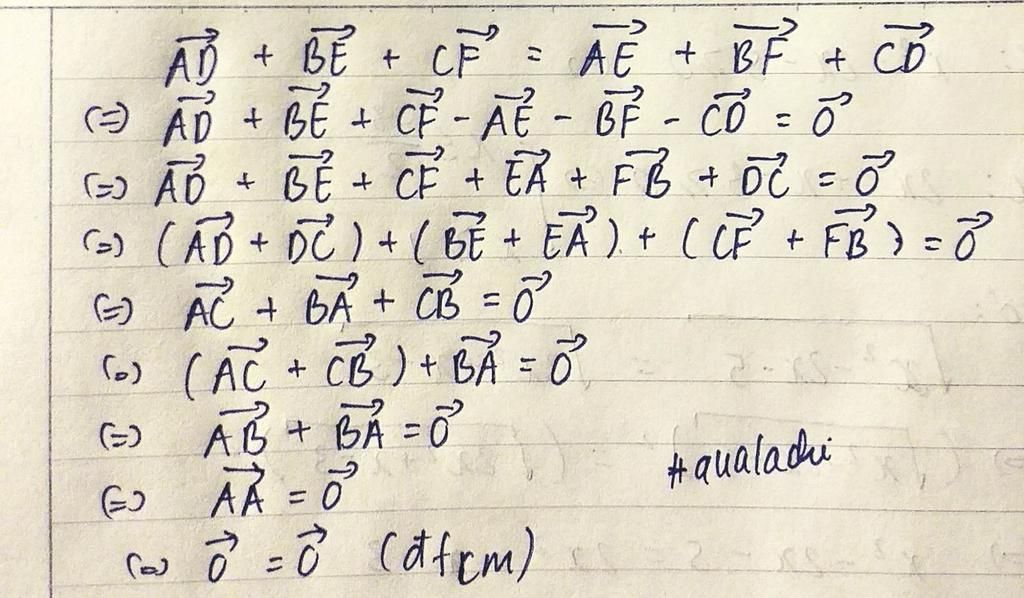 $\overrightarrow{AD} + \overrightarrow{BE} + \overrightarrow{CF} = \overrightarrow{AE} + \overrightarrow{BF} + \overrightarrow{CD}$
(=) $\overrightarrow{AD} + \overrightarrow{BE} + \overrightarrow{CF} - \overrightarrow{AE} - \overrightarrow{BF} - \overrightarrow{CD} = \overrightarrow{0}$
(=) $\overrightarrow{AD} + \overrightarrow{BE} + \overrightarrow{CF} + \overrightarrow{EA} + \overrightarrow{FB} + \overrightarrow{DC} = \overrightarrow{0}$
(=) $(\overrightarrow{AD} + \overrightarrow{DC}) + (\overrightarrow{BE} + \overrightarrow{EA}) + (\overrightarrow{CF} + \overrightarrow{FB}) = \overrightarrow{0}$
(=) $\overrightarrow{AC} + \overrightarrow{BA} + \overrightarrow{CB} = \overrightarrow{0}$
(=) $(\overrightarrow{AC} + \overrightarrow{CB}) + \overrightarrow{BA} = \overrightarrow{0}$
(=) $\overrightarrow{AB} + \overrightarrow{BA} = \overrightarrow{0}$
#aualachi
(=) $\overrightarrow{AA} = \overrightarrow{0}$
(=) $\overrightarrow{0} = \overrightarrow{0}$ (đfcm)